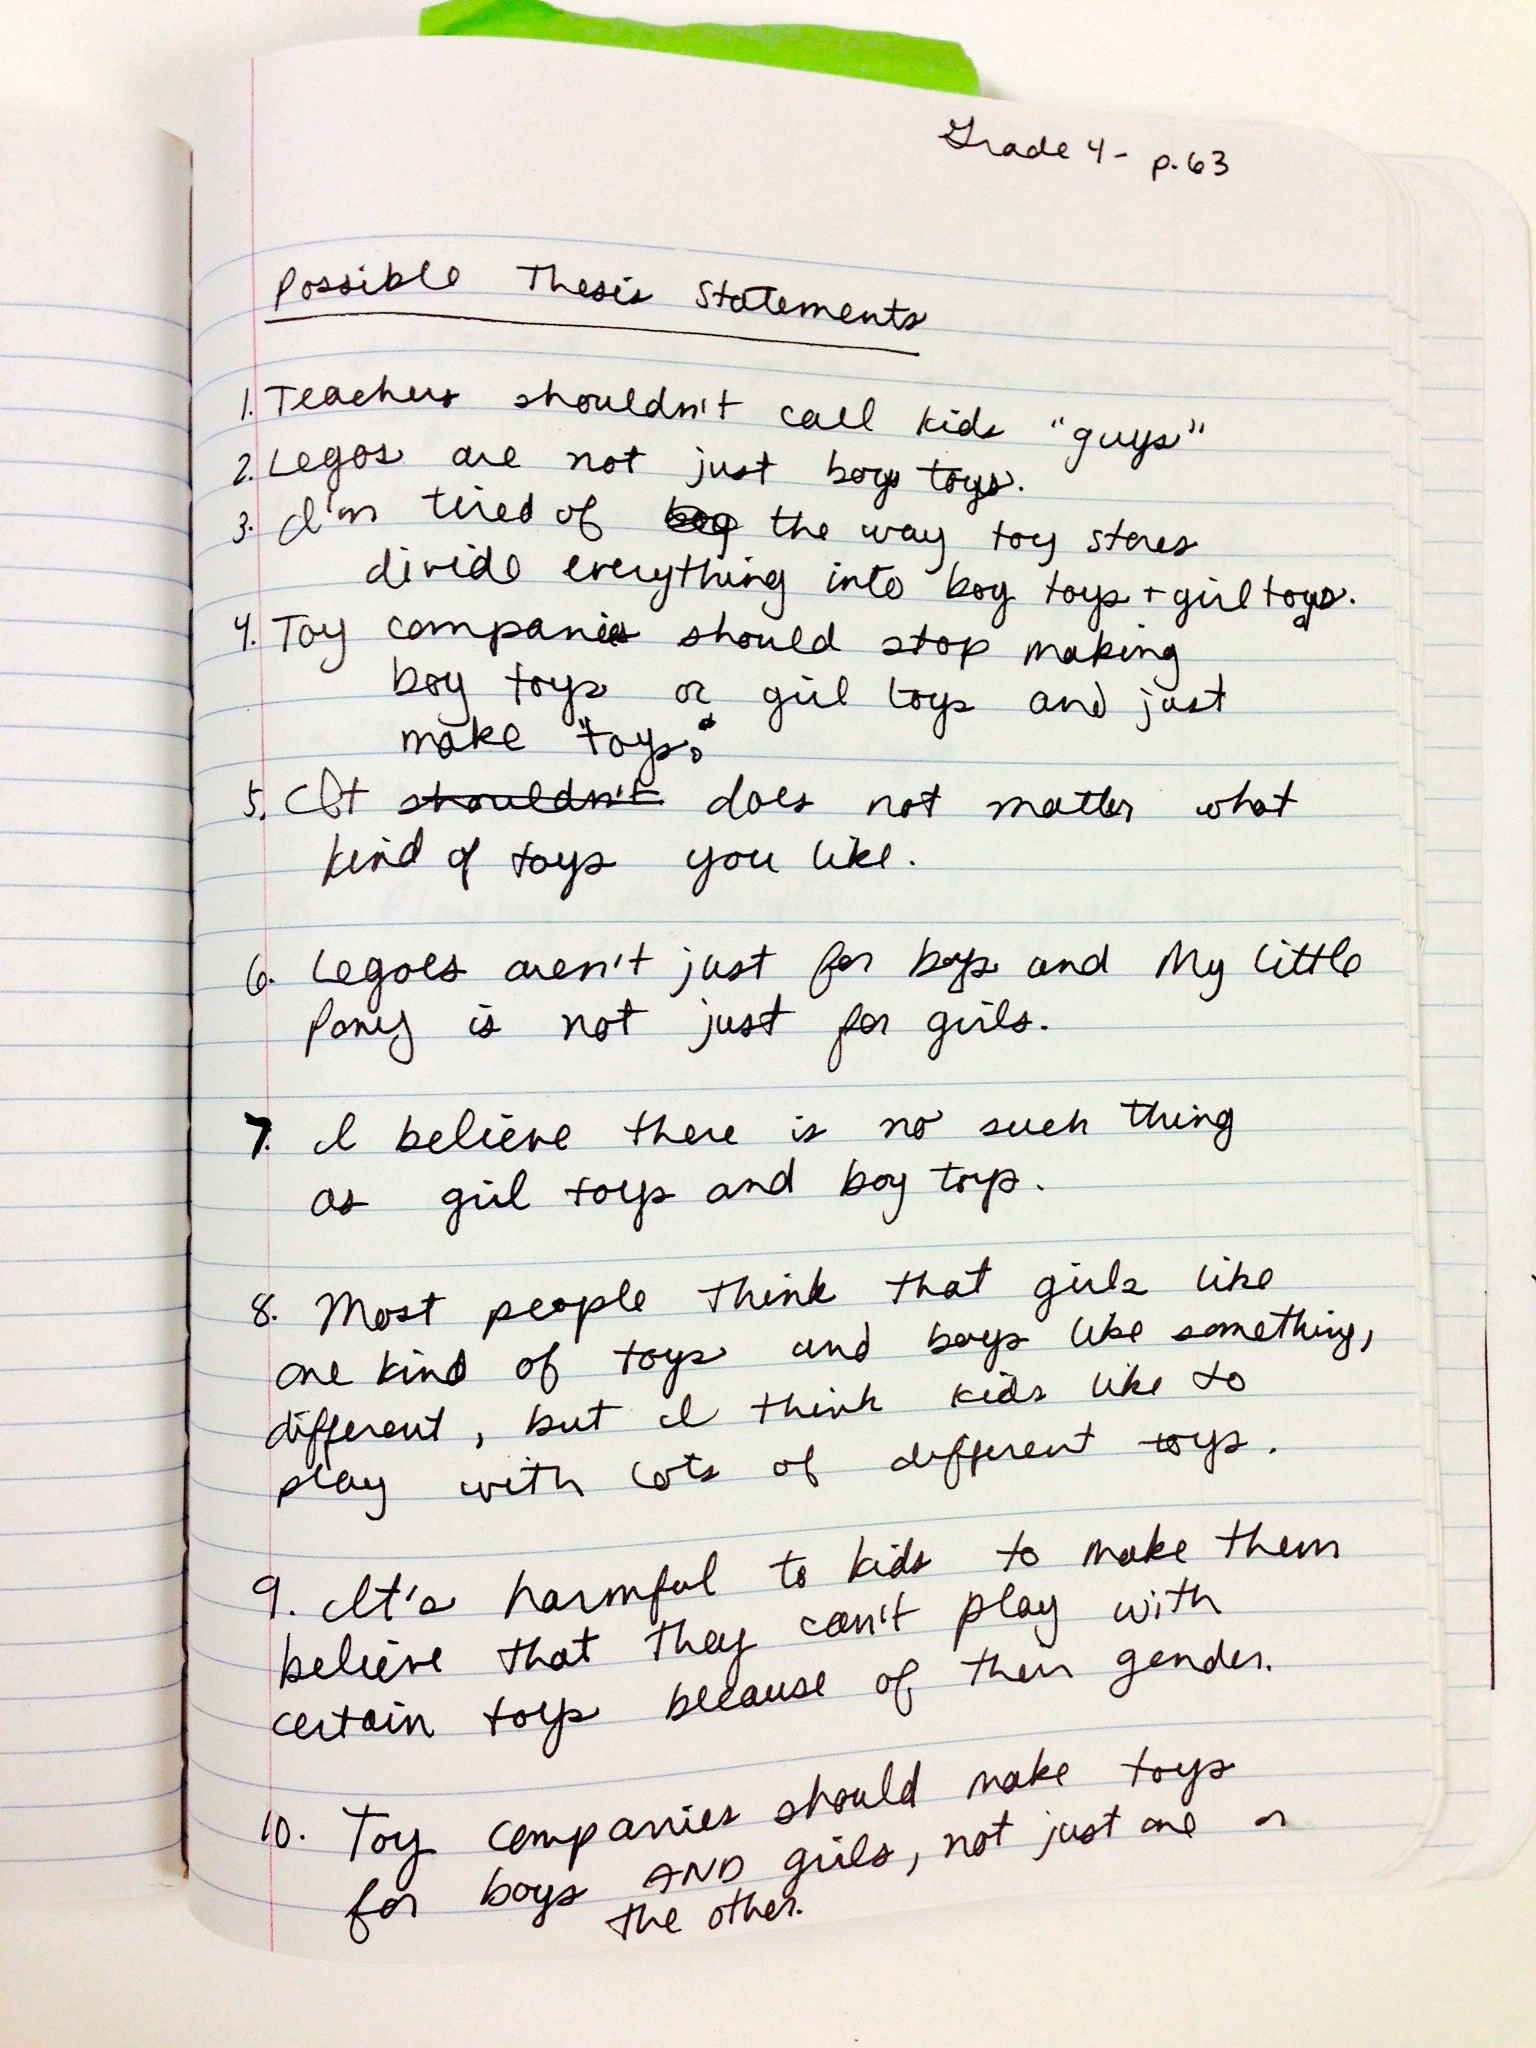 Grade 4 - p. 63
Possible Thesis Statements
1. Teachers shouldn't call kids "guys"
2. Legos are not just boys toys.
3. I'm tired of boy the way toy stores
divide everything into boy toys + girl toys.
4. Toy companies should stop making
boy toys or girl toys and just
make "toys."
5. It shouldn't does not matter what
kind of toys you like.
6. Legoes aren't just for boys and My Little
Pony is not just for girls.
7. I believe there is no such thing
as girl toys and boy toys.
8. Most people think that girls like
one kind of toys and boys like something,
different, but I think kids like to
play with lots of different toys.
9. It's harmful to kids to make them
believe that they can't play with
certain toys because of their gender.
10. Toy companies should make toys
for boys AND girls, not just one or
the other.